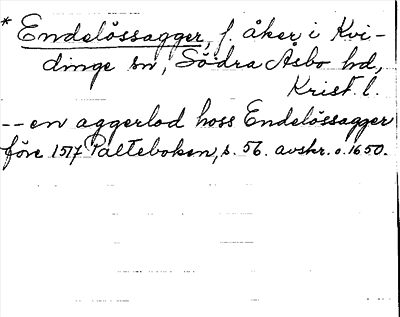 * Endelössagger, f. åker i Kvi-
dinge sn, Södra Åsbo hd,
Krist. l.
-- en aggerlod hoss Endelössagger
före 1517 Palteboken, s. 56. avskr. o. 1650.